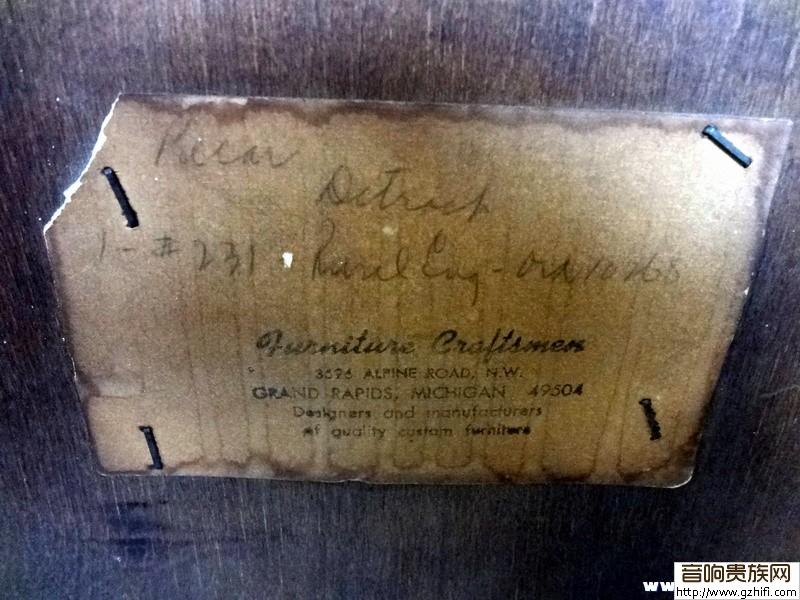 Detroit
1 - # 231
Furniture Craftsmen
3596 ALPINE ROAD, N.W.
GRAND RAPIDS, MICHIGAN 49504
Designers and manufacturers
of quality custom furniture
www
音响贵族网
http://www.gzhifi.com